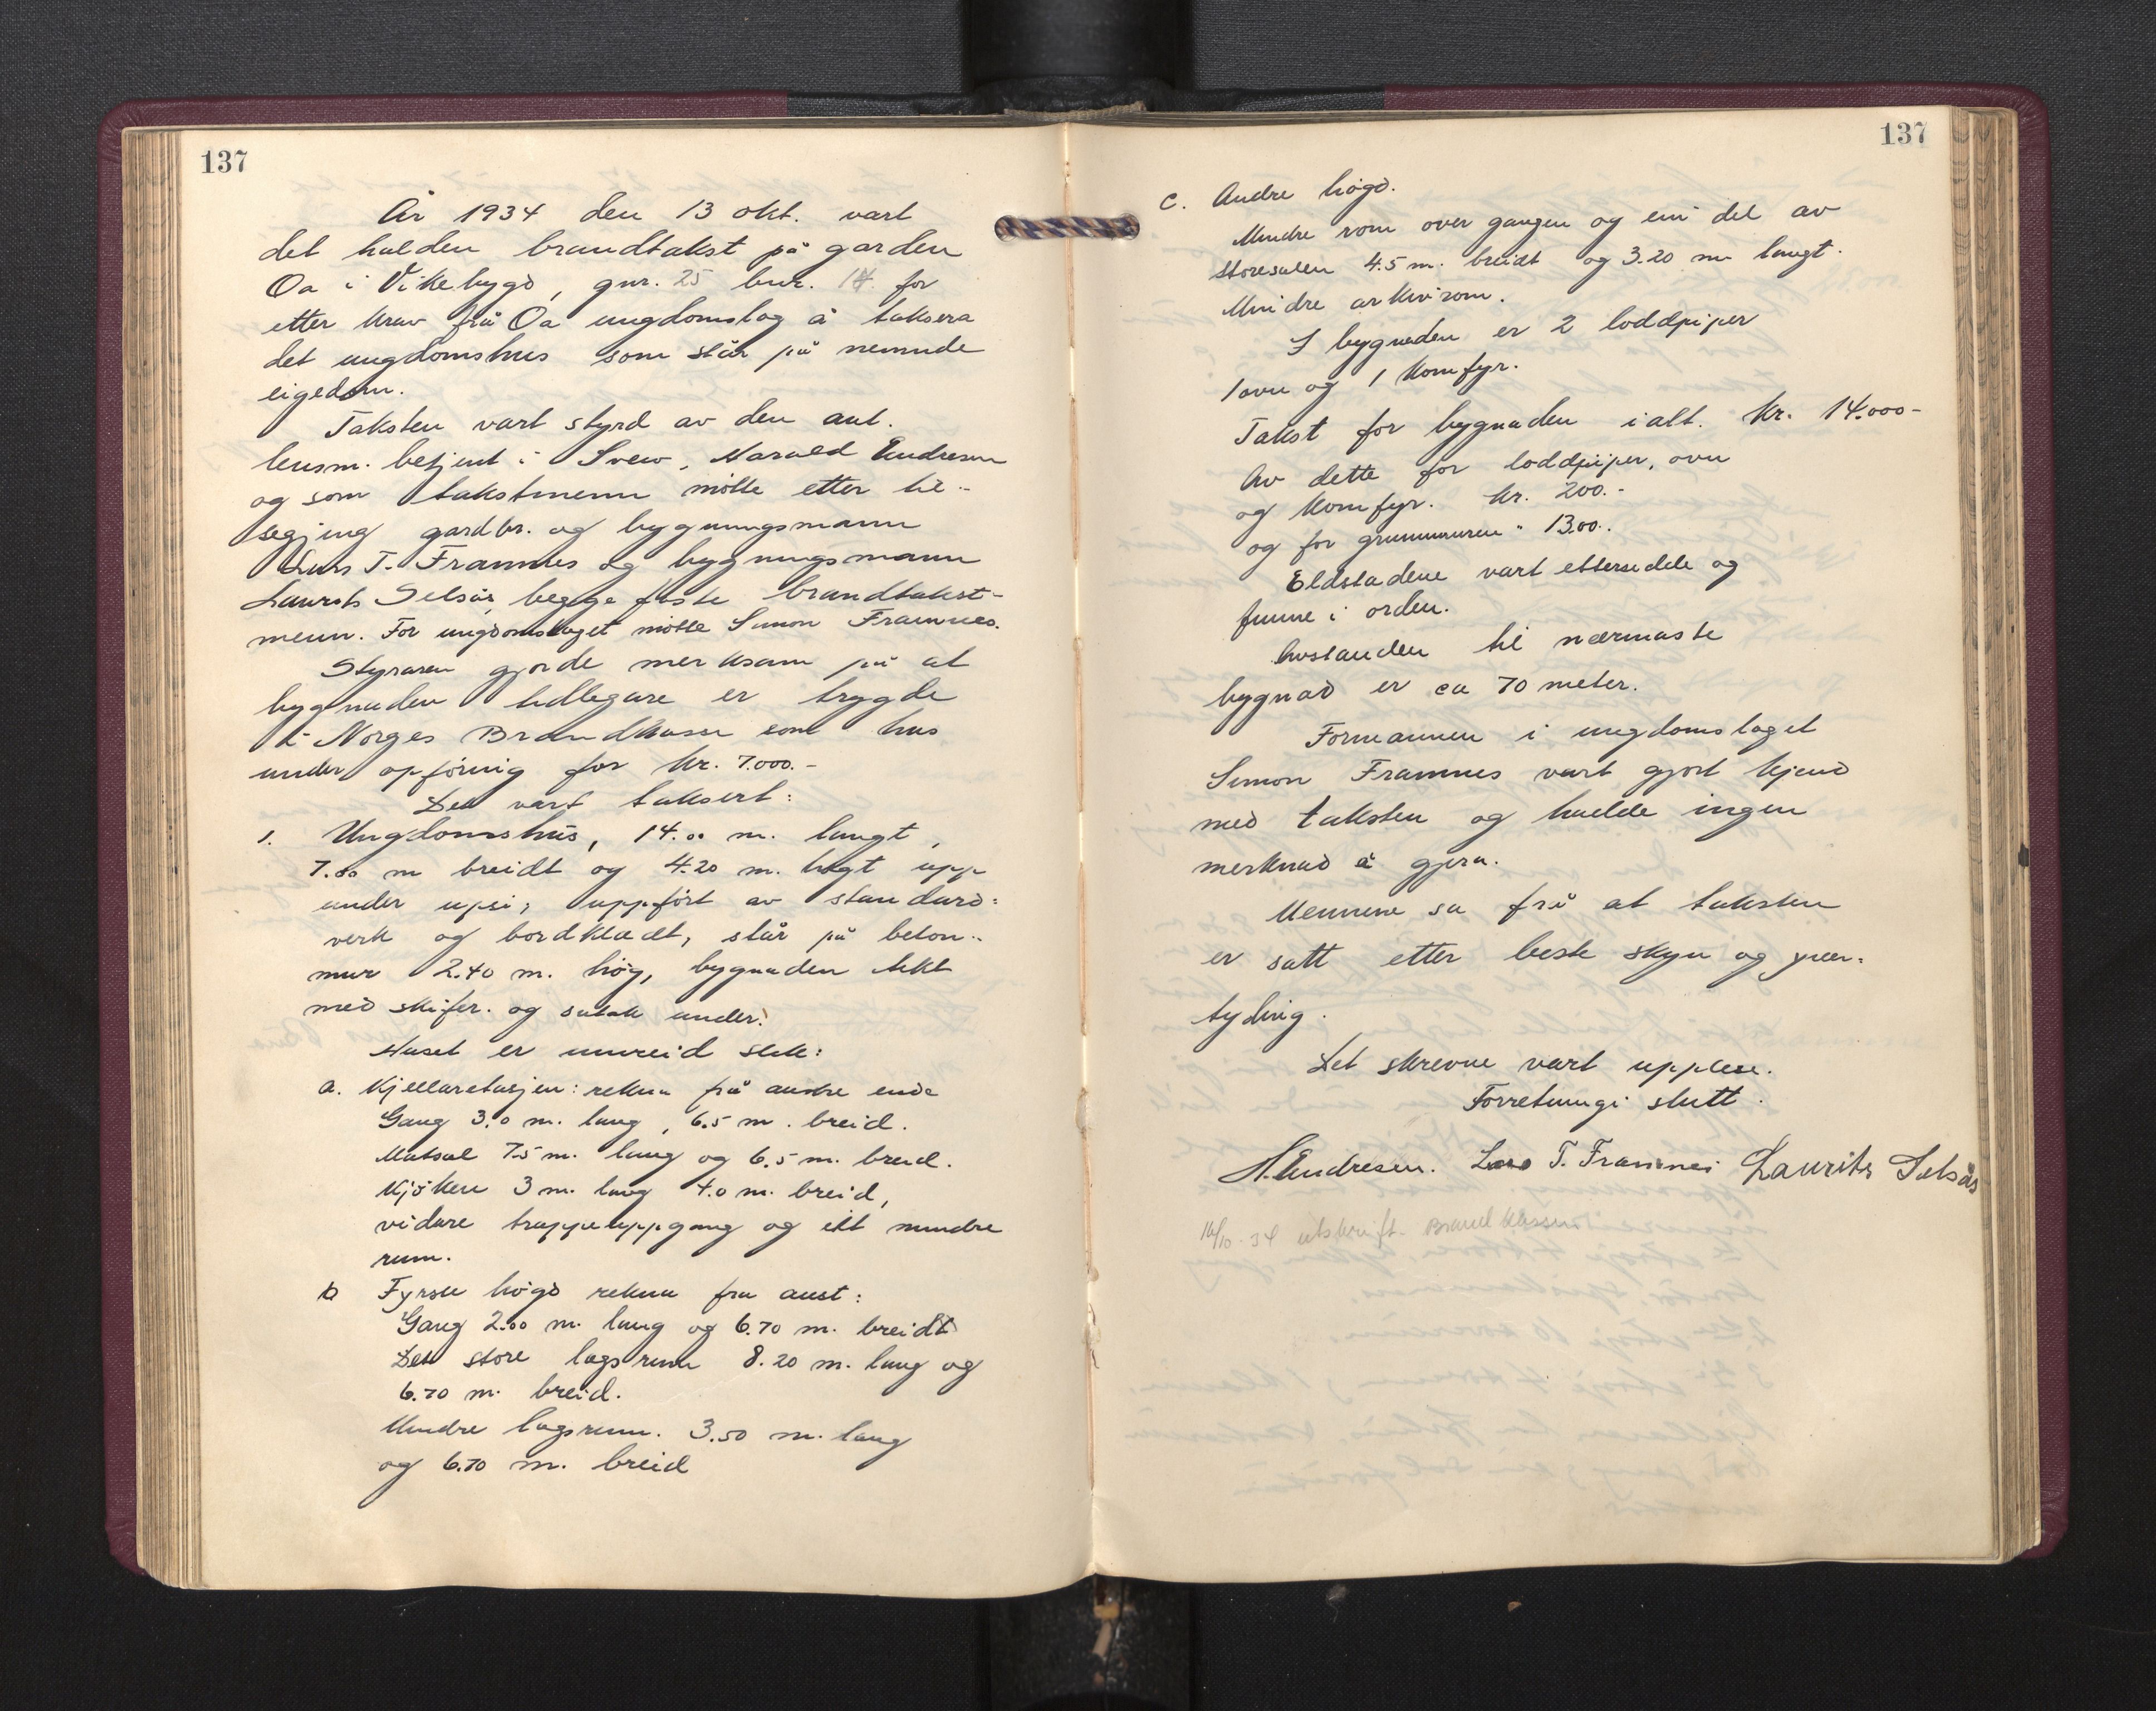 137
År 1934 den 13 okt. vart
det halden brandtakst på garden
Oa i Vikebygd, gnr. 25 bnr. 14 for
etter krav frå Oa ungdomslag å taksera
det ungdomshus som står på nemnde
eigedom.
Taksten vart styrd av den aut.
lensm. betjent i Sveio, Harald Endresen
og som takstmenn møtte etter til-
segjing gardbr. og bygningsmann
Lars T. Framnes og bygningsmann
Laurits Selsås, begge faste brandtakst-
menn. For ungdomslaget møtte Simon Framnes.
Styraren gjorde merksam på at
bygnaden tidlegare er trygde
i Norges Brandkasse som hus
under opføring for kr. 7.000.-
Det vart taksert:
1. Ungdomshus, 14.00 m. langt,
7.00 m breidt og 4.20 m. høgt upp
under upsi, uppført av standard-
verk og bordklædt, står på beton-
mur 2.40 m. høg, bygnaden tekt
med skifer. og sutak under.
Huset er innreid slik:
a. Kjellaretasjen: rekna frå austre ende
Gang 3.0 m. lang, 6.5 m. breid.
Matsal 7.5 m. lang og 6.5 m. breid.
Kjøken 3 m. lang 4.0 m. breid,
vidare trappeuppgang og eitt mindre
rum.
b Fyrste høgd rekna fra aust:
Gang 2.00 m. lang og 6.70 m. breidt
Det store lagsrum 8.20 m. lang og
6.70 m. breid.
Mindre lagsrum. 3.50 m. lang
og 6.70 m. breid
137
c. Andre høgd.
Mindre rom over gangen og ein del av
storesalen 4.5 m. breidt og 3.20 m langt.
Mindre arkivrom.
I bygnaden er 2 loddpiper
1 ovn og 1 komfyr.
Takst for bygnaden ialt. kr. 14.000-
Av dette for loddpiper, ovn
og komfyr. kr. 200.-
og for grunnmuren " 1300.
Eldstadene vart ettersedde og
funne i orden.
Avstanden til nærmaste
bygnad er ca 70 meter.
Formannen i ungdomslaget
Simon Framnes vart gjort kjend
med taksten og hadde ingen
merknad å gjera.
Mennene sa frå at taksten
er satt etter beste skyn og yver-
tyding.
Det skrevne vart upplese.
Forretningi slutt.
H. Endresen. Lars T. Framnes Laurits Selsås
16/10-34 utskrift. Brandkassen